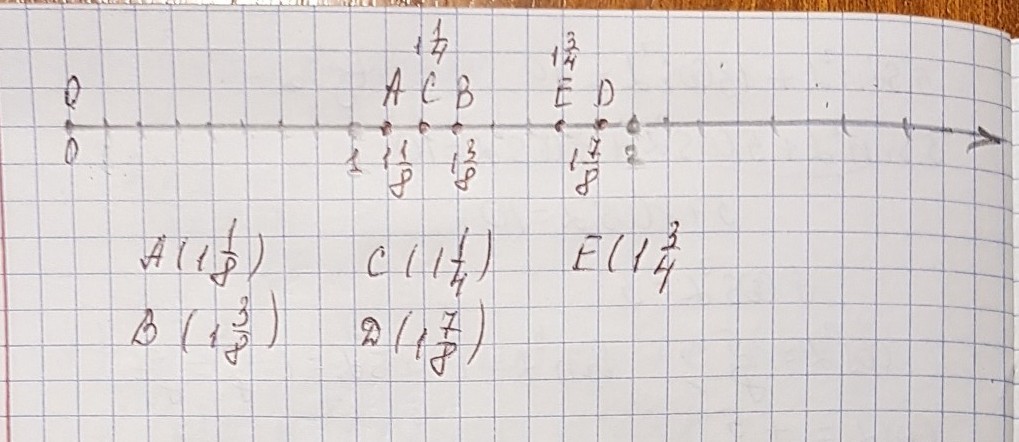 1 1/4 1 3/4
O A C B E D
0 1 1 1/8 1 3/8 1 7/8 2
A(1 1/8) C(1 1/4) E(1 3/4
B(1 3/8) D(1 7/8)